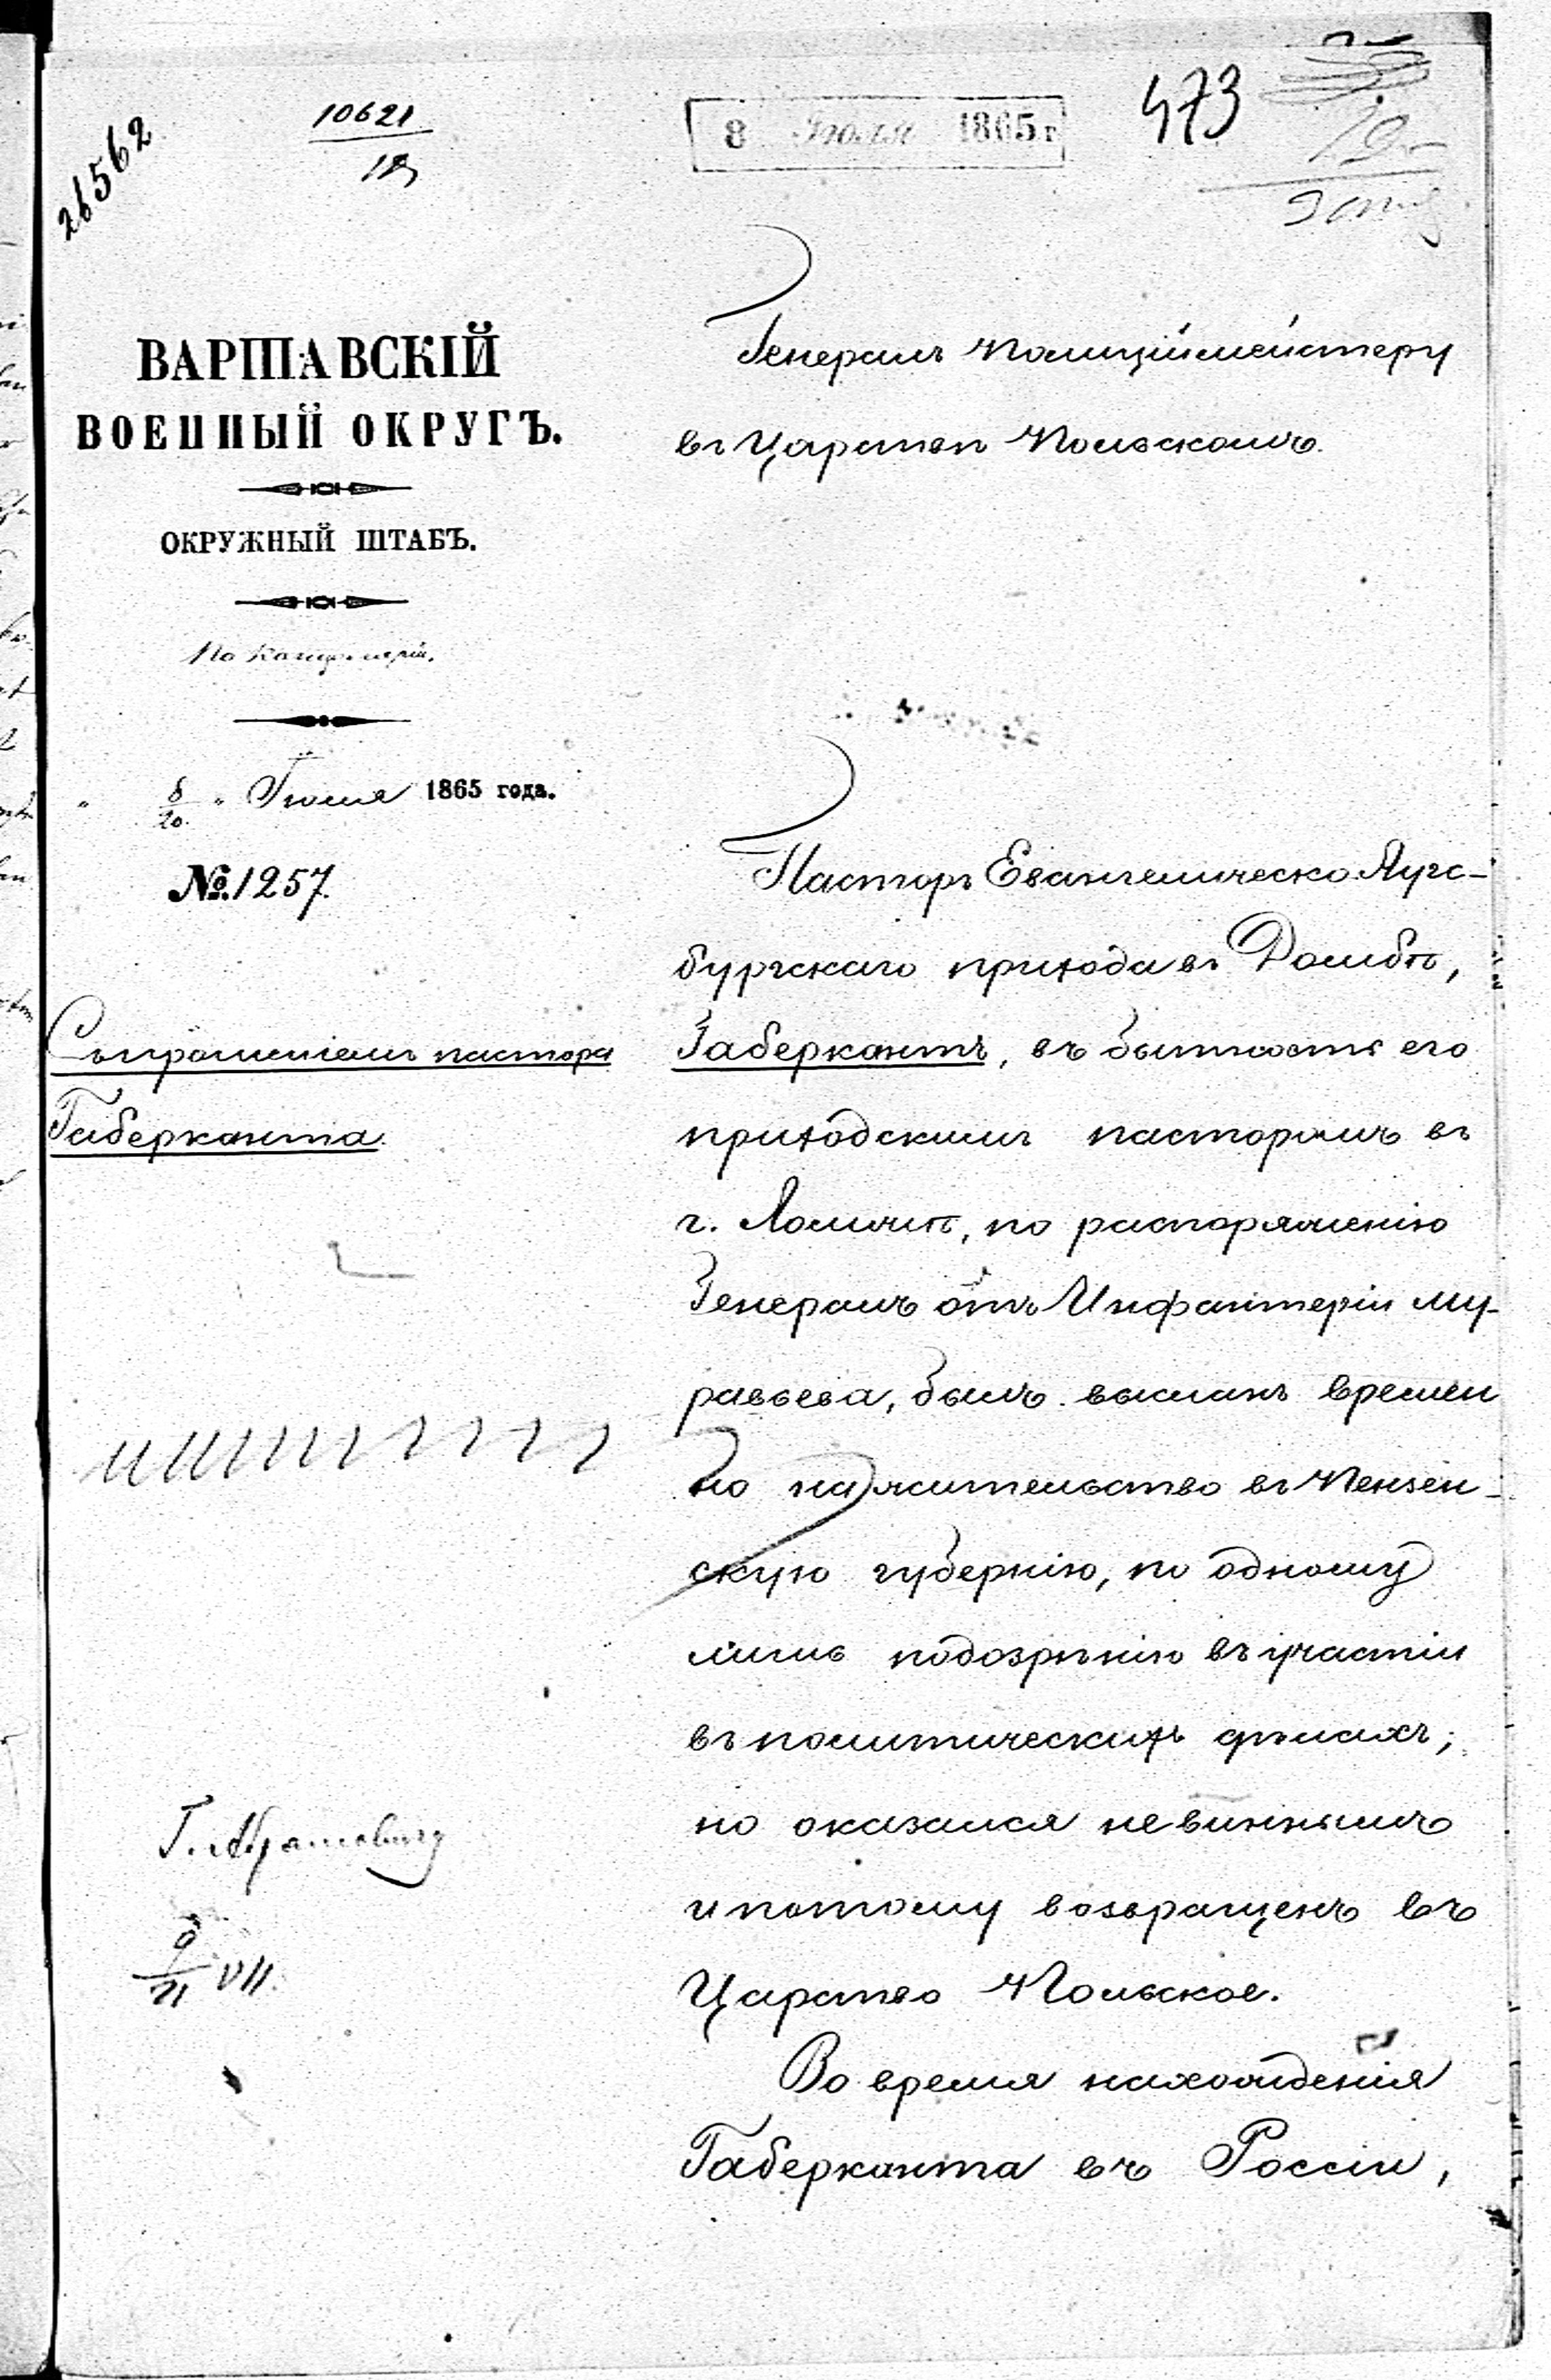 26562
10621
8 Іюля 1865 г
473
ВАРШАВСКІЙ
ВОЕННЫЙ ОКРУГЪ.
ОКРУЖНЫЙ ШТАБЪ.
По Канцеляріи.
" 8/20 " Іюля 1865 года.
№ 1257.
Съ прошеніемъ пастора
Габерканта.
Г. Абрамовичу
9/21 VII.
Генералъ Полиціймейстеру
въ Царствѣ Польскомъ.
Пасторъ Евангелическо Аугс-
бургскаго прихода въ Домбѣ,
Габеркантъ, въ бытность его
приходскимъ пасторомъ въ
г. Ломжѣ, по распоряженію
Генералъ отъ Инфантеріи Му-
равьева, былъ высланъ времен
но на жительство въ Пензен-
скую губернію, по одному
лишь подозрѣнію въ участіи
въ политическихъ дѣлахъ;
но оказался невиннымъ
и потому возвращенъ въ
Царство Польское.
Во время нахожденія
Габерканта въ Россіи,